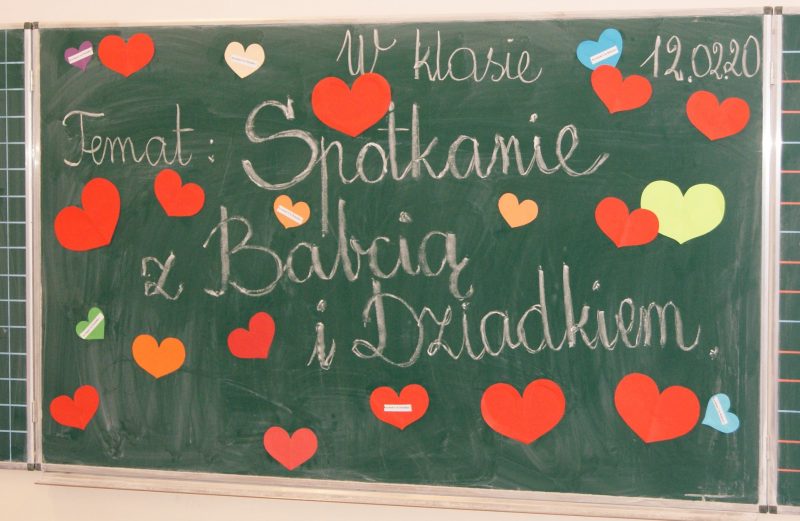 W klasie 12.02.20
Temat: Spotkanie
z Babcią
i Dziadkiem.